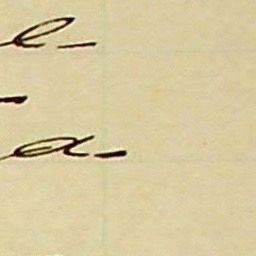 e-
-
a-